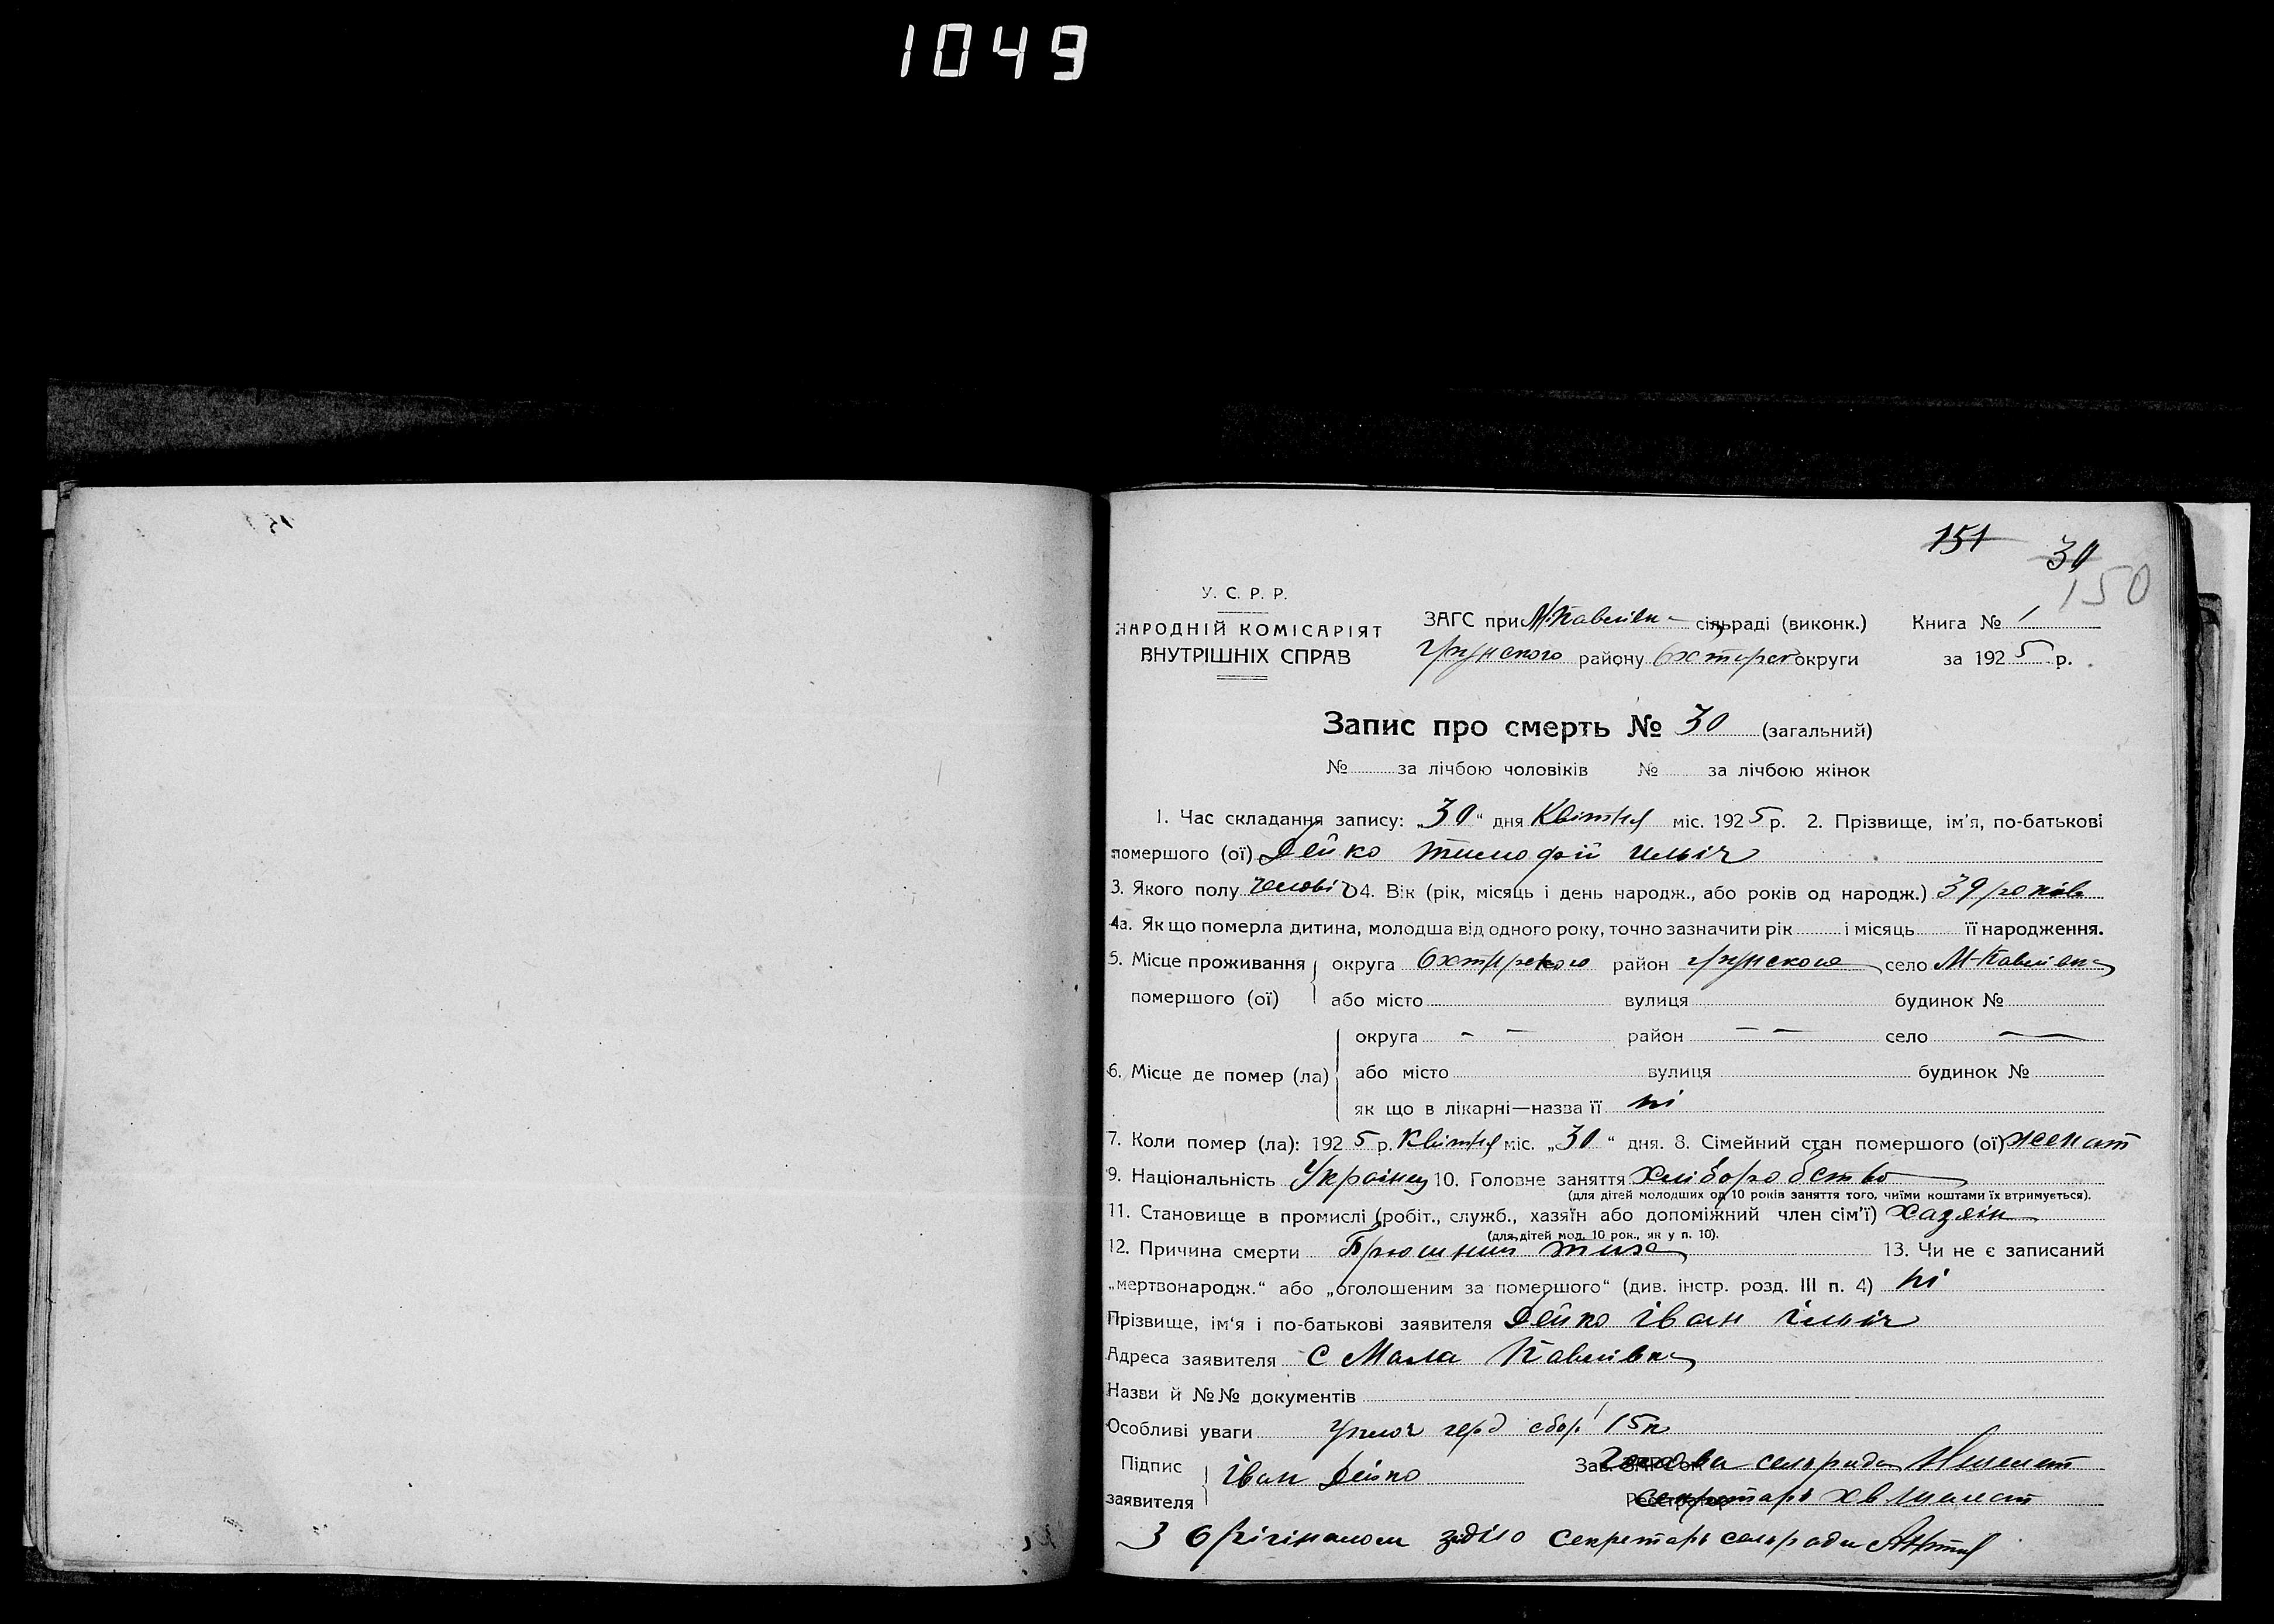 1049
151
30
150
У. С. Р. Р.
НАРОДНІЙ КОМІСАРІЯТ
ВНУТРІШНІХ СПРАВ
ЗАГС при М.Павлівк- сільраді (виконк.) Книга № 1
Грунского району Охтирск округи за 1925 р.
Запис про смерть № 30 (загальний)
№ за лічбою чоловіків № за лічбою жінок
1. Час складання запису: „30“ дня Квітня міс. 1925 р. 2. Прізвище, ім'я, по-батькові
помершого (ої) Дейко Тимофій Ильіч
3. Якого полу чоловіч 4. Вік (рік, місяць і день народж., або років од народж.) 39 років
4а. Як що померла дитина, молодша від одного року, точно зазначити рік і місяць її народження.
5. Місце проживання округа Охтирского район Грунского село М-Павлівка
помершого (ої) або місто вулиця будинок №
округа - - район - - село -
6. Місце де помер (ла) або місто вулиця будинок №
як що в лікарні—назва її ні
7. Коли помер (ла): 1925 р. Квітня міс. „30“ дня. 8. Сімейний стан помершого (ої) женат
9. Національність Українец 10. Головне заняття хліборобство
(для дітей молодших од 10 років заняття того, чиїми коштами їх втримується).
11. Становище в промислі (робіт., служб., хазяїн або допоміжний член сім'ї) хазяін
(для дітей мол. 10 рок., як у п. 10).
12. Причина смерти Брюшний тиф 13. Чи не є записаний
„мертвонародж.“ або „оголошеним за помершого“ (див. інстр. розд. III п. 4) ні
Прізвище, ім'я і по-батькові заявителя Дейко Іван Ільіч
Адреса заявителя С Мала Павлівка
Назви й №№ документів
Особливі уваги сбор 15к
Підпис Іван Дейко Зав. ЗАГС'ом Голова сельради
заявителя Реєстратор Секретарь
З Орігіналом згідно Секретарь сельради